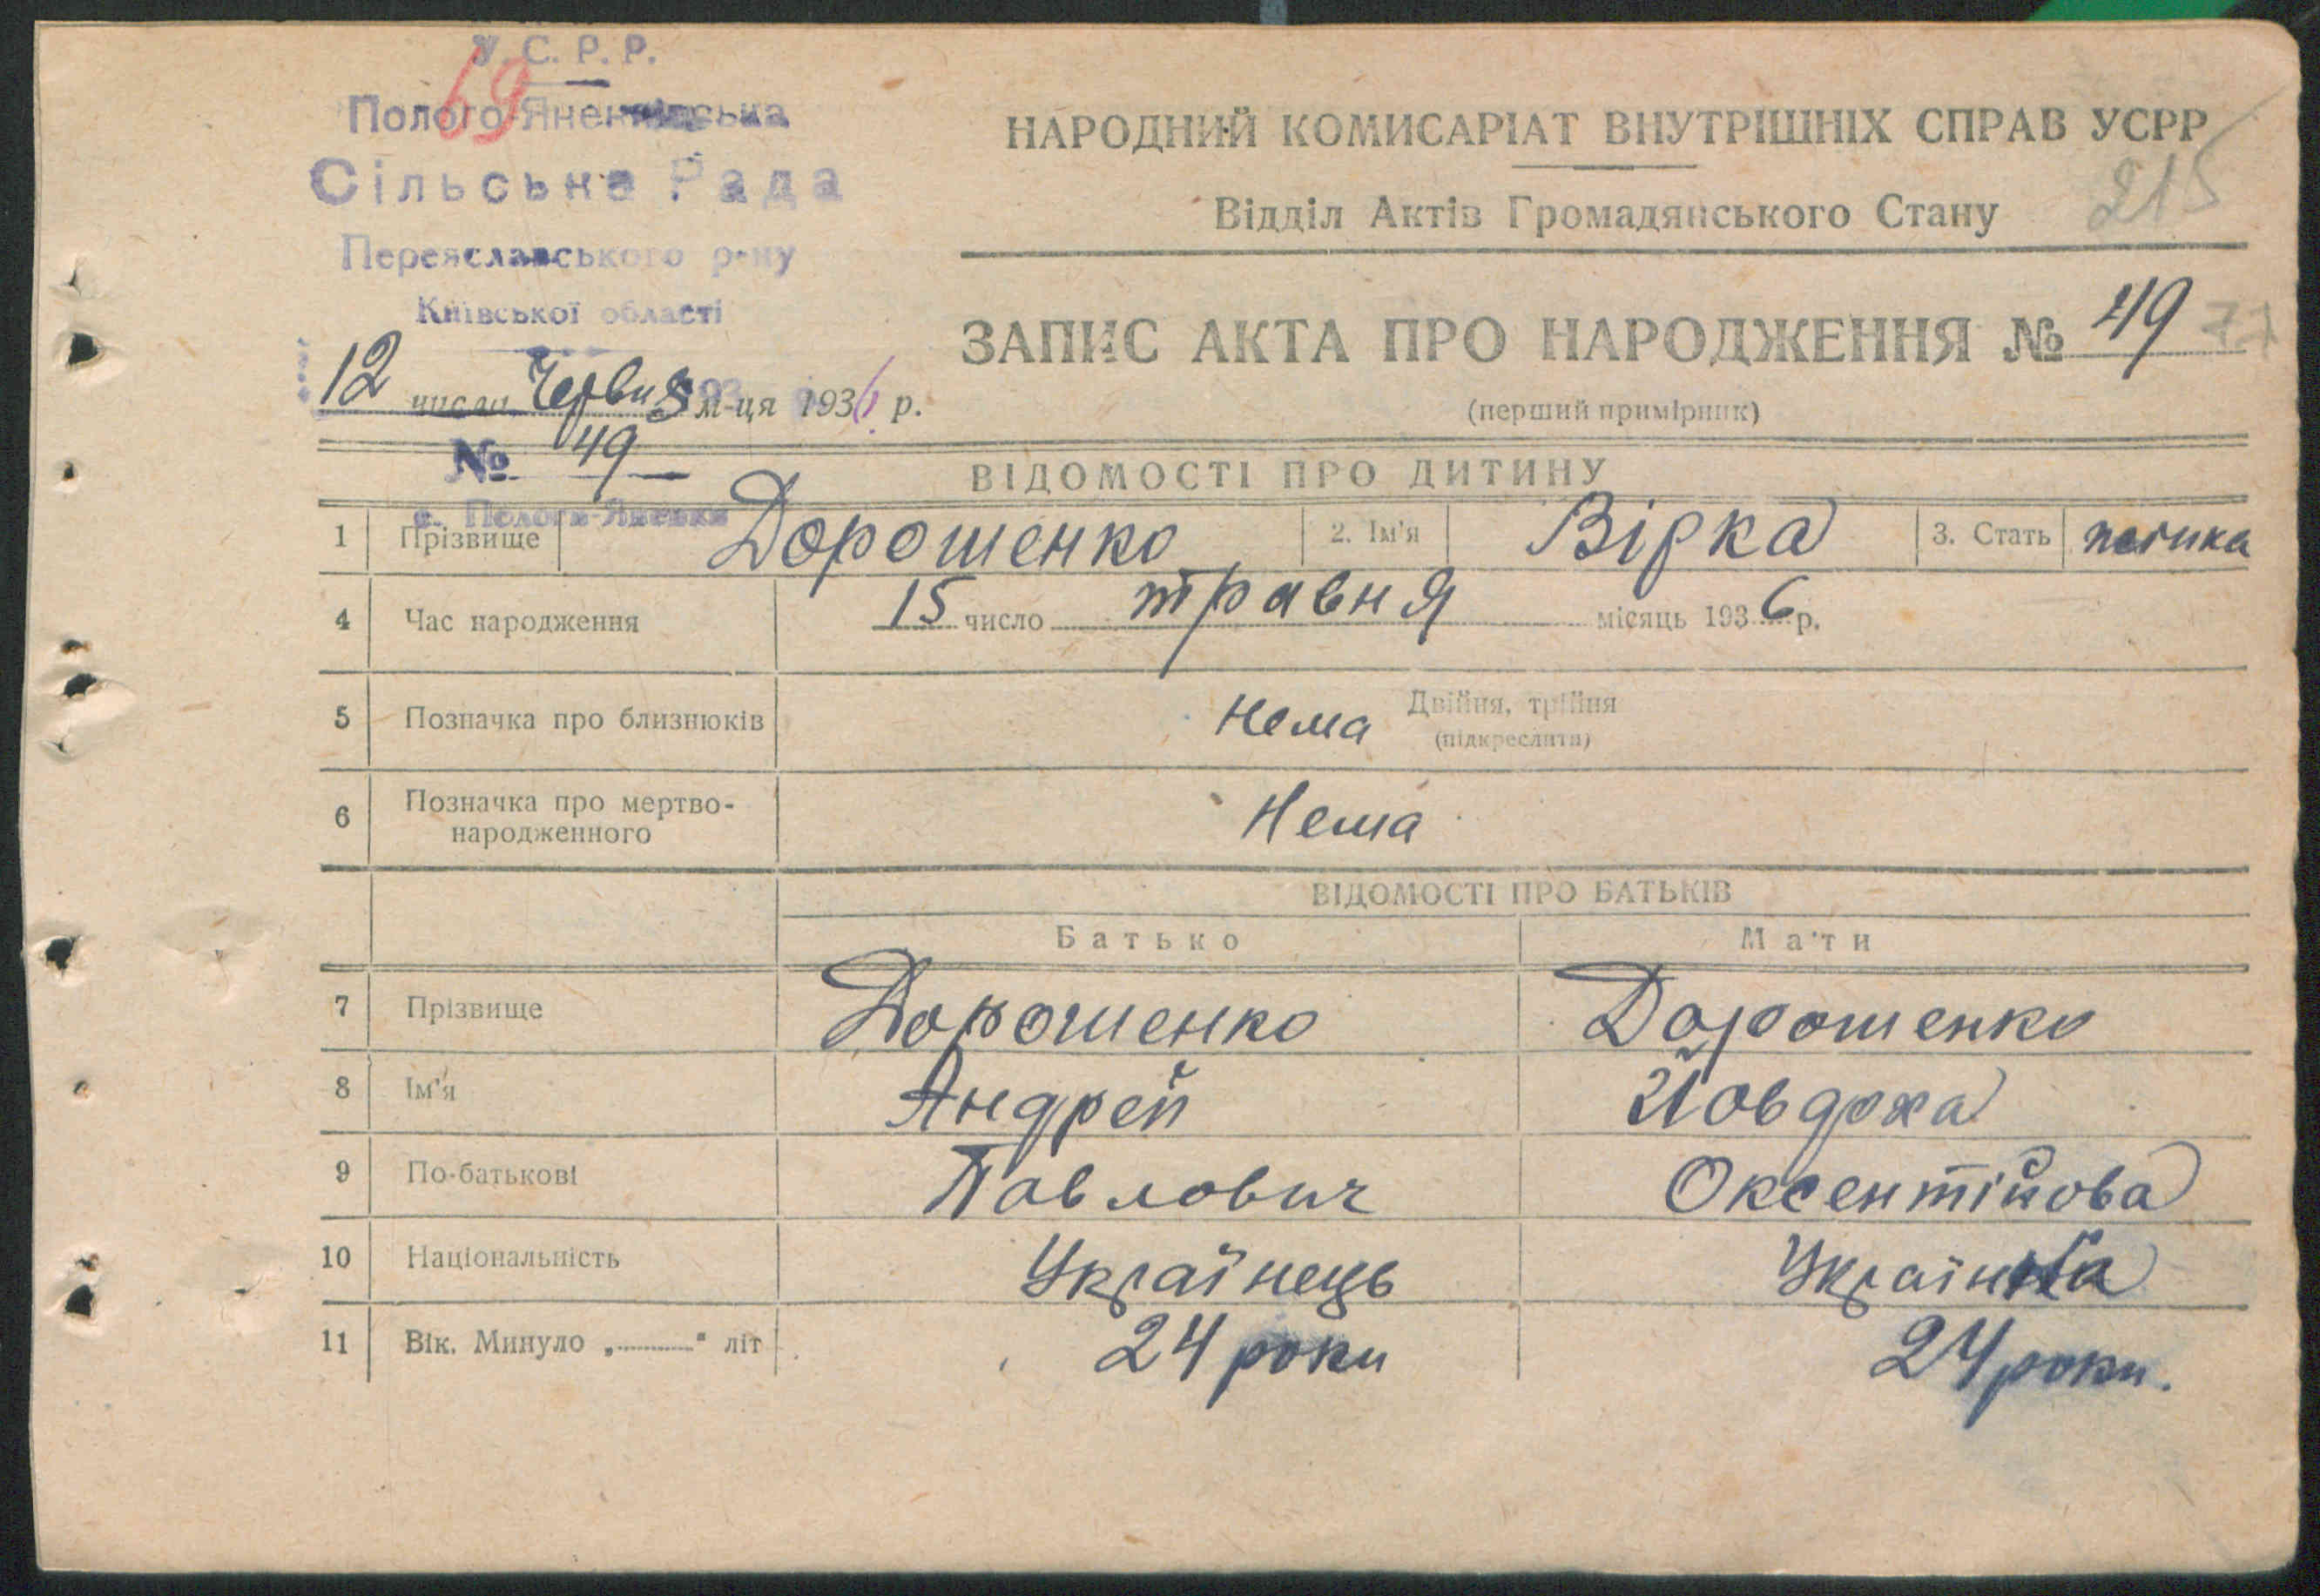 У.С.Р.Р.
69
Сільська Рада
Переяславського р-ну
Київської області
НАРОДНИЙ КОМИСАРІАТ ВНУТРІШНІХ СПРАВ УСРР
215
Відділ Актів Громадянського Стану
ЗАПИС АКТА ПРО НАРОДЖЕННЯ № 49 77
(перший примірник)
12 числа Червня м-ця 1936 р.
№ 49
ВІДОМОСТІ ПРО ДИТИНУ
с. Пологи-Яненки
1 Прізвище Дорошенко 2. Ім'я Вірка 3. Стать
4 Час народження 15 число травня місяць 1936 р.
5 Позначка про близнюків Нема Двійня, трійня
(підкреслити)
6 Позначка про мертво-
народженного Нема
ВІДОМОСТІ ПРО БАТЬКІВ
Батько Мати
7 Прізвище Дорошенко Дорошенко
8 Ім'я Андрей Йовдоха
9 По-батькові Павлович Оксентійова
10 Національність Українець Українка
11 Вік. Минуло „..........“ літ 24 роки 24 роки.